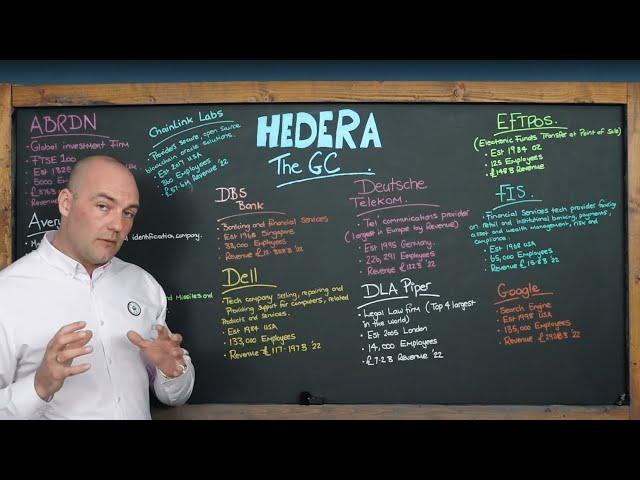 HEDERA
The GC
ABRDN
Global investment Firm
FTSE 100
Est
5000
Revenue
ChainLink Labs
Provides secure, open source
blockchain oracle solutions.
Est 2017 USA
360 Employees
Revenue '22
identification company.
Missiles and
DBS
Bank
Banking and financial services
Est 1968 Singapore
33,000 Employees
Revenue '22
Dell
Tech company selling, repairing and
Providing support for computers, related
Products and services.
Est 1984 USA
133,000 Employees
Revenue £117.197B '22
Deutsche
Telekom.
Tel communications provider
(largest in Europe by Revenue)
Est 1995 Germany.
226,291 Employees
Revenue '22
DLA Piper
Legal Law firm (Top 4 largest
in the world)
Est 2005 London
14,000 Employees
£7.2B Revenue '22
EFTPOS.
(Electronic Funds Transfer at Point of Sale)
Est 1984 OZ
125 Employees
£148B Revenue
FIS.
Financial Services tech provider
on retail and institutional banking, payments,
asset and wealth management, risk and
compliance.
Est 1968 USA
65,000 Employees
Revenue '22
Google
Search Engine
Est 1998 USA
135,000 Employees
Revenue '22